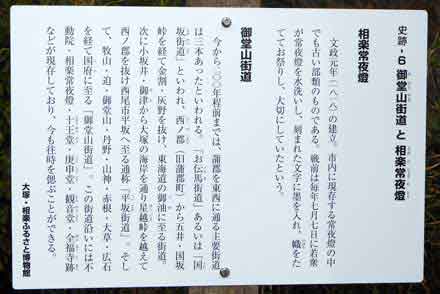 史跡-6 御堂山街道 と 相楽常夜燈
相楽常夜燈
文政元年(一八一八)の建立。市内に現存する常夜燈の中
でも古い部類のものである。戦前は毎年七月七日に若衆
が常夜燈を水洗いし、刻まれた文字に墨を入れ、幟をた
ててお祭りし、大切にしていたという。
御堂山街道
今から一〇〇年程前までは、蒲郡を東西に通る主要街道
は三本あったといわれる。「お伝馬街道」あるいは「国
坂街道」といわれ、西ノ郡(旧蒲郡町)から五井・国坂
峠を経て金割・灰野を抜け、東海道の御油に至る街道。
次に小坂井・御津から大塚の海岸を通り星越峠を越えて
西ノ郡を抜け西尾市平坂へ至る通称「平坂街道」。そし
て、牧山・迫・御堂山・丹野・山神・赤根・大草・広石
を経て国府に至る「御堂山街道」。この街道沿いには不
動院・相楽常夜燈・十王堂・庚申堂・観音堂・全福寺跡
などが現存しており、今も往時を偲ぶことができる。
大塚・相楽ふるさと博物館